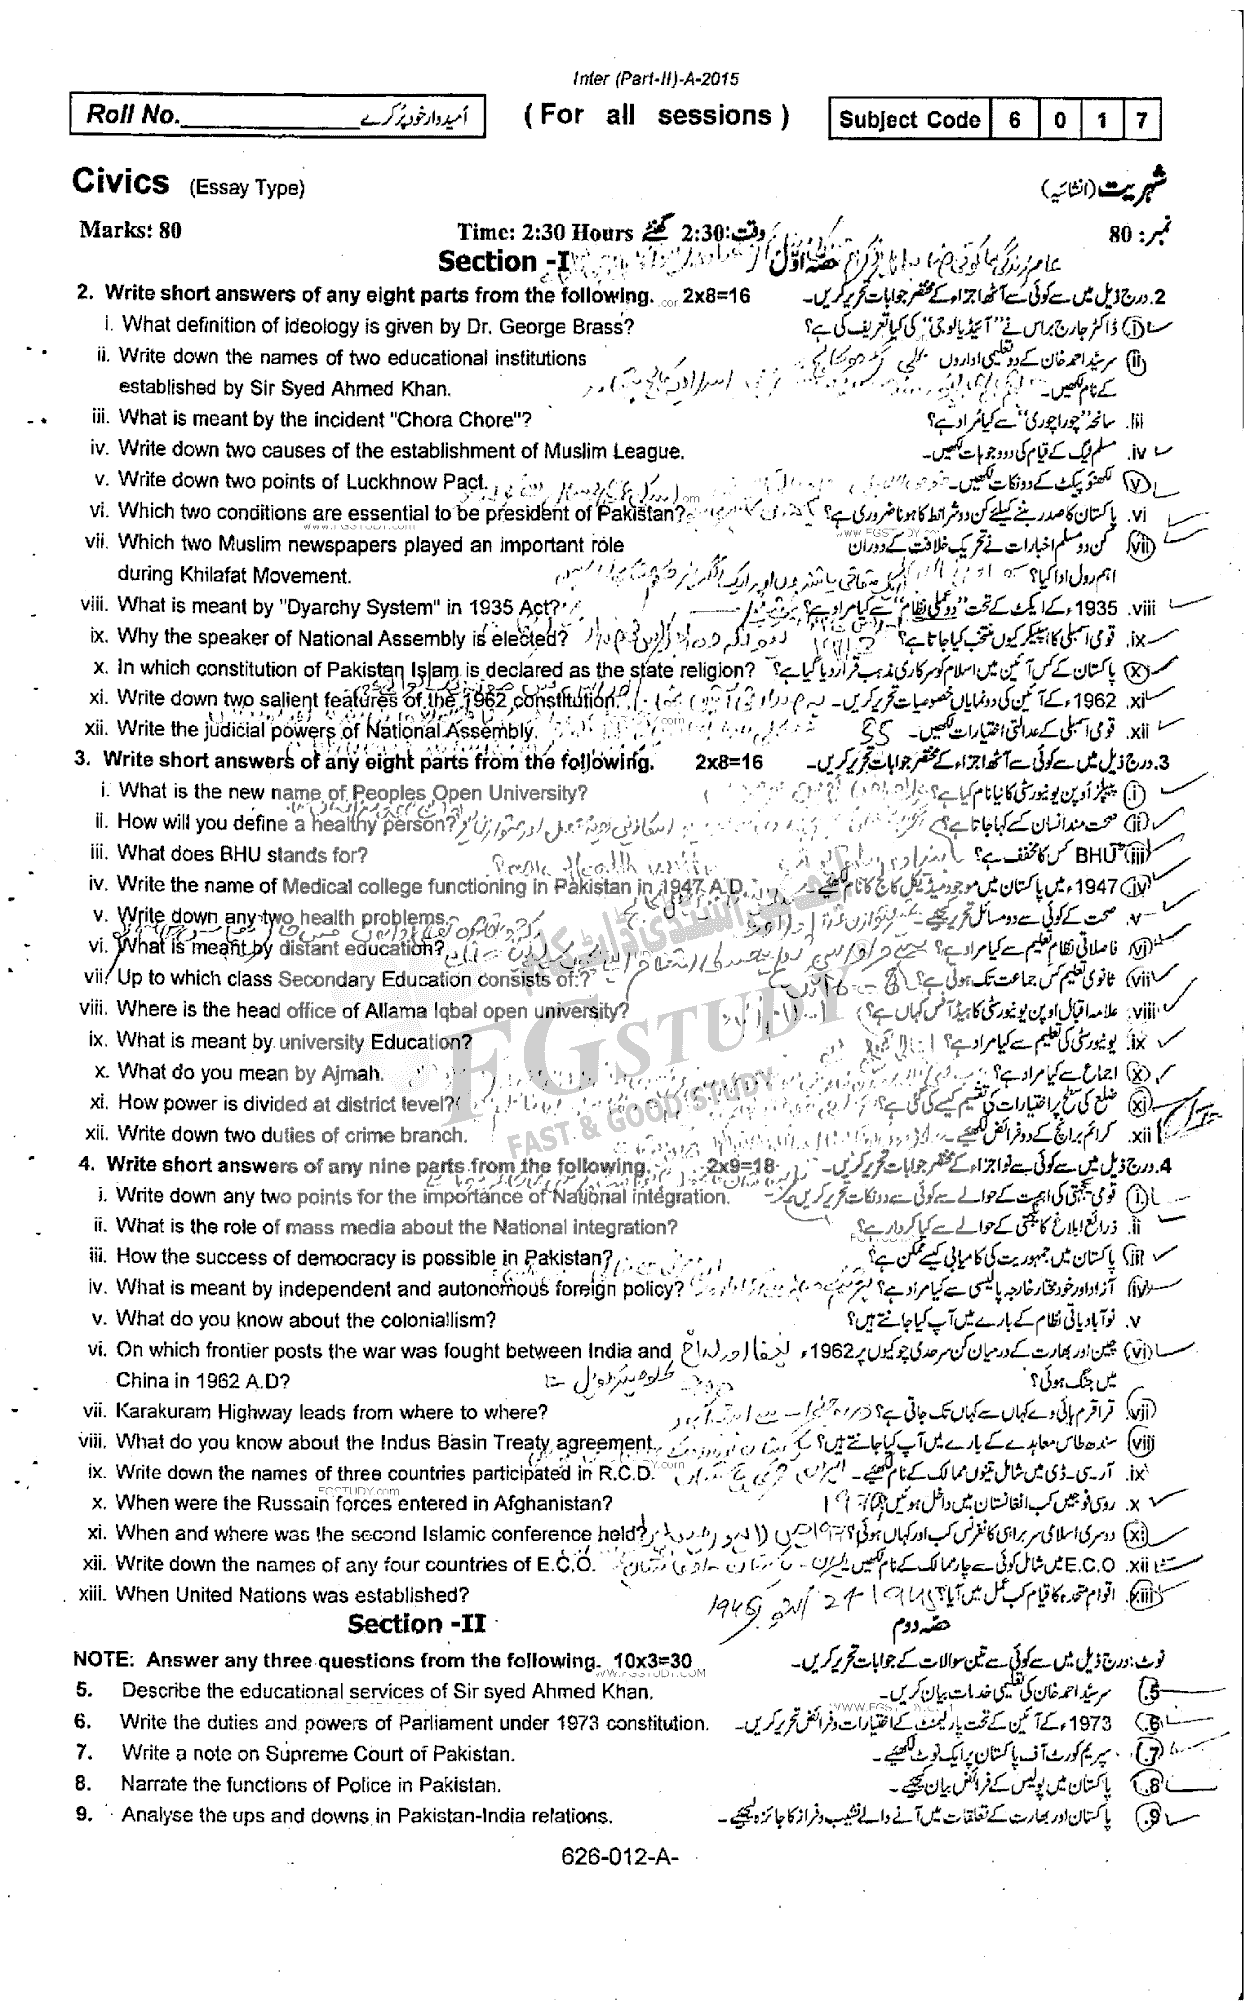 Inter (Part-II)-A-2015
Roll No. امیدوار خود پُر کرے
( For all sessions )
Subject Code 6 0 1 7
Civics (Essay Type) شہریت (انشائیہ)
Marks: 80 Time: 2:30 Hours وقت: 2:30 گھنٹے نمبر: 80
Section -I حصّہ اوّل
2. Write short answers of any eight parts from the following. 2x8=16 2. درج ذیل میں سے کوئی سے آٹھ اجزاء کے مختصر جوابات تحریر کریں۔
i. What definition of ideology is given by Dr. George Brass? (i) ڈاکٹر جارج براس نے "آئیڈیالوجی" کی کیا تعریف کی ہے؟
ii. Write down the names of two educational institutions (ii) سرسیّد احمد خان کے دو تعلیمی اداروں
established by Sir Syed Ahmed Khan. کے نام لکھیں۔
iii. What is meant by the incident "Chora Chore"? iii. سانحہ "چورا چوری" سے کیا مُراد ہے؟
iv. Write down two causes of the establishment of Muslim League. iv. مسلم لیگ کے قیام کی دو وجوہات لکھیں۔
v. Write down two points of Luckhnow Pact. (v) لکھنؤ پیکٹ کے دو نکات لکھیں۔
vi. Which two conditions are essential to be president of Pakistan? vi. پاکستان کا صدر بننے کیلئے کن دو شرائط کا ہونا ضروری ہے؟
www.FGSTUDY.com WWW.FGSTUDY.com
vii. Which two Muslim newspapers played an important role (vii) کن دو مسلم اخبارات نے تحریک خلافت کے دوران
during Khilafat Movement. اہم رول ادا کیا؟
viii. What is meant by "Dyarchy System" in 1935 Act? viii. 1935ء کے ایکٹ کے تحت "دو عملی نظام" سے کیا مراد ہے؟
ix. Why the speaker of National Assembly is elected? ix. قومی اسمبلی کا اسپیکر کیوں منتخب کیا جاتا ہے؟
x. In which constitution of Pakistan Islam is declared as the state religion? (x) پاکستان کے کس آئین میں اسلام کو سرکاری مذہب قرار دیا گیا ہے؟
xi. Write down two salient features of the 1962 constitution. xi. 1962ء کے آئین کی دو نمایاں خصوصیات تحریر کریں۔
xii. Write the judicial powers of National Assembly. xii. قومی اسمبلی کے عدالتی اختیارات لکھیں۔
3. Write short answers of any eight parts from the following. 2x8=16 3. درج ذیل میں سے کوئی سے آٹھ اجزاء کے مختصر جوابات تحریر کریں۔
i. What is the new name of Peoples Open University? (i) پیپلز اوپن یونیورسٹی کا نیا نام کیا ہے؟
ii. How will you define a healthy person? (ii) صحت مند انسان کسے کہا جاتا ہے؟
iii. What does BHU stands for? Basic Health unit (iii) BHU کس کا مخفف ہے؟
iv. Write the name of Medical college functioning in Pakistan in 1947 A.D. (iv) 1947ء میں پاکستان میں موجود میڈیکل کالج کا نام لکھیئے۔
v. Write down any two health problems. v. صحت کے کوئی سے دو مسائل تحریر کیجیے۔
vi. What is meant by distant education? (vi) فاصلاتی نظام تعلیم سے کیا مراد ہے؟
vii. Up to which class Secondary Education consists of? (vii) ثانوی تعلیم کس جماعت تک ہوتی ہے؟
viii. Where is the head office of Allama Iqbal open university? viii. علامہ اقبال اوپن یونیورسٹی کا ہیڈ آفس کہاں ہے؟
ix. What is meant by university Education? ix. یونیورسٹی کی تعلیم سے کیا مراد ہے؟
x. What do you mean by Ajmah. (x) اجماع سے کیا مراد ہے؟
xi. How power is divided at district level? (xi) ضلع کی سطح پر اختیارات کی تقسیم کیسے کی گئی ہے؟
xii. Write down two duties of crime branch. xii. کرائم برانچ کے دو فرائض لکھیئے۔
FG STUDY
FAST & GOOD STUDY
4. Write short answers of any nine parts from the following. 2x9=18 4. درج ذیل میں سے کوئی سے نو اجزاء کے مختصر جوابات تحریر کریں۔
i. Write down any two points for the importance of National integration. (i) قومی یکجہتی کی اہمیت کے حوالے سے کوئی سے دو نکات تحریر کریں۔
ii. What is the role of mass media about the National integration? ii. ذرائع ابلاغ کا یکجہتی کے حوالے سے کیا کردار ہے؟
iii. How the success of democracy is possible in Pakistan? (iii) پاکستان میں جمہوریت کی کامیابی کیسے ممکن ہے؟
iv. What is meant by independent and autonomous foreign policy? (iv) آزاد اور خود مختار خارجہ پالیسی سے کیا مراد ہے؟
v. What do you know about the coloniallism? v. نوآبادیاتی نظام کے بارے میں آپ کیا جانتے ہیں؟
vi. On which frontier posts the war was fought between India and (vi) چین اور بھارت کے درمیان کن سرحدی چوکیوں پر 1962ء
China in 1962 A.D? میں جنگ ہوئی؟
vii. Karakuram Highway leads from where to where? (vii) قراقرم ہائی وے کہاں سے کہاں تک جاتی ہے؟
viii. What do you know about the Indus Basin Treaty agreement. (viii) سندھ طاس معاہدے کے بارے میں آپ کیا جانتے ہیں؟
ix. Write down the names of three countries participated in R.C.D. ix. آر۔سی۔ڈی میں شامل تینوں ممالک کے نام لکھیئے۔
FGSTUDY.com
x. When were the Russain forces entered in Afghanistan? x. روسی فوجیں کب افغانستان میں داخل ہوئیں؟
xi. When and where was the second Islamic conference held? (xi) دوسری اسلامی سربراہی کانفرنس کب اور کہاں ہوئی؟
xii. Write down the names of any four countries of E.C.O. xii. E.C.O میں شامل کوئی سے چار ممالک کے نام لکھیں۔
xiii. When United Nations was established? (xiii) اقوام متحدہ کا قیام کب عمل میں آیا؟
Section -II حصّہ دوم
NOTE: Answer any three questions from the following. 10x3=30 نوٹ: درج ذیل میں سے کوئی سے تین سوالات کے جوابات تحریر کریں۔
WWW.FGSTUDY.COM
5. Describe the educational services of Sir syed Ahmed Khan. 5. سرسیّد احمد خان کی تعلیمی خدمات بیان کریں۔
WWW.FGSTUDY.COM
6. Write the duties and powers of Parliament under 1973 constitution. 6. 1973ء کے آئین کے تحت پارلیمنٹ کے اختیارات و فرائض تحریر کریں۔
7. Write a note on Supreme Court of Pakistan. 7. سپریم کورٹ آف پاکستان پر ایک نوٹ لکھیئے۔
8. Narrate the functions of Police in Pakistan. 8. پاکستان میں پولیس کے فرائض بیان کیجیے۔
9. Analyse the ups and downs in Pakistan-India relations. 9. پاکستان اور بھارت کے تعلقات میں آنے والے نشیب و فراز کا جائزہ لیجیئے۔
626-012-A-